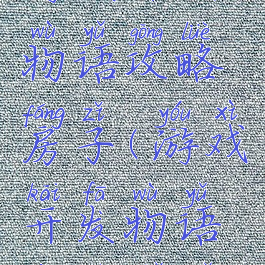 wù yǔ gōng lüè
物语攻略
fáng zǐ yóu xì
房子(游戏
kāi fā wù yǔ
开发物语